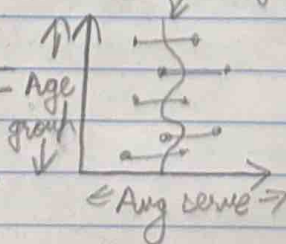 = Age
group
Avg serve